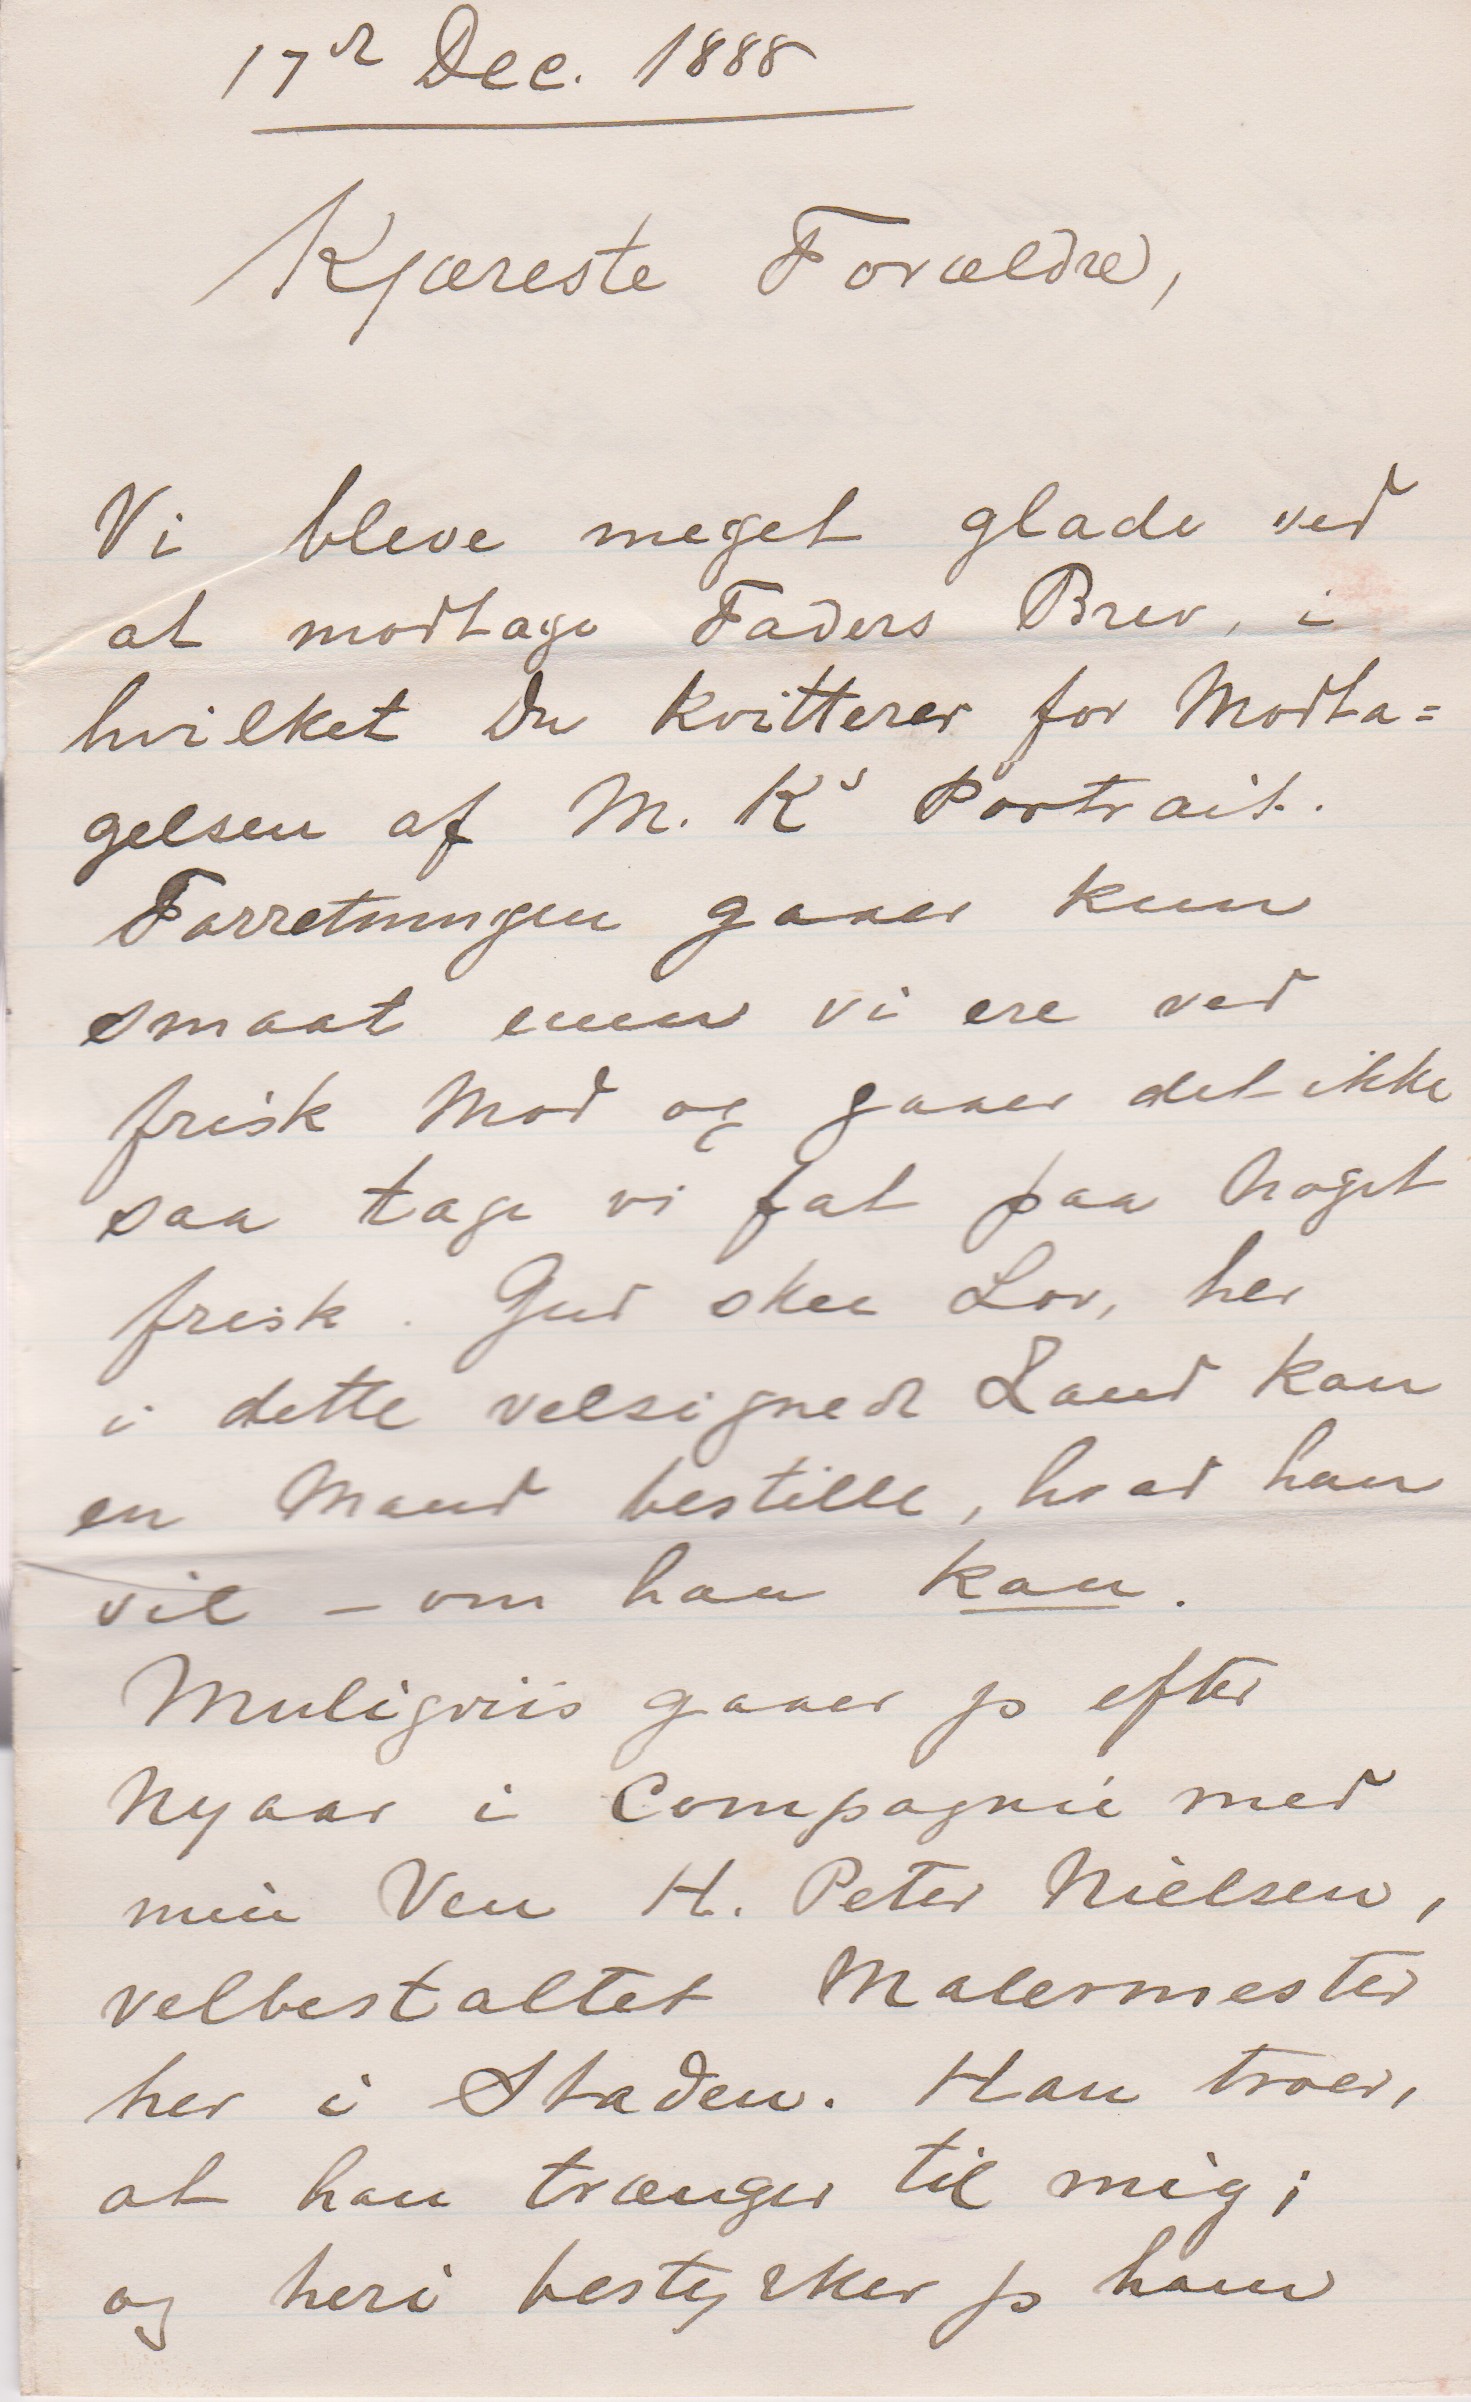 17de Dec. 1888
Kjæreste Forældre,
Vi bleve meget glade ved
at modtage Faders Brev, i
hvilket Du kvitterer for Modta=
gelsen af M. Ks Portrait.
Forretningen gaaer kun
smaat enm vi ere ved
frisk Mod og gaaer det ikke
saa tage vi fat paa Noget
frisk. Gud skee Lov, her
i dette velsignede Land kan
en Mand bestille, hvad han
vil – om han kan.
Muligviis gaaer jeg efter
Nyaar i Compagnie med
min Ven H. Peter Nielsen,
velbestaltet Malermester
her i Staden. Han troer,
at han trænger til mig;
og heri bestyrker jeg ham